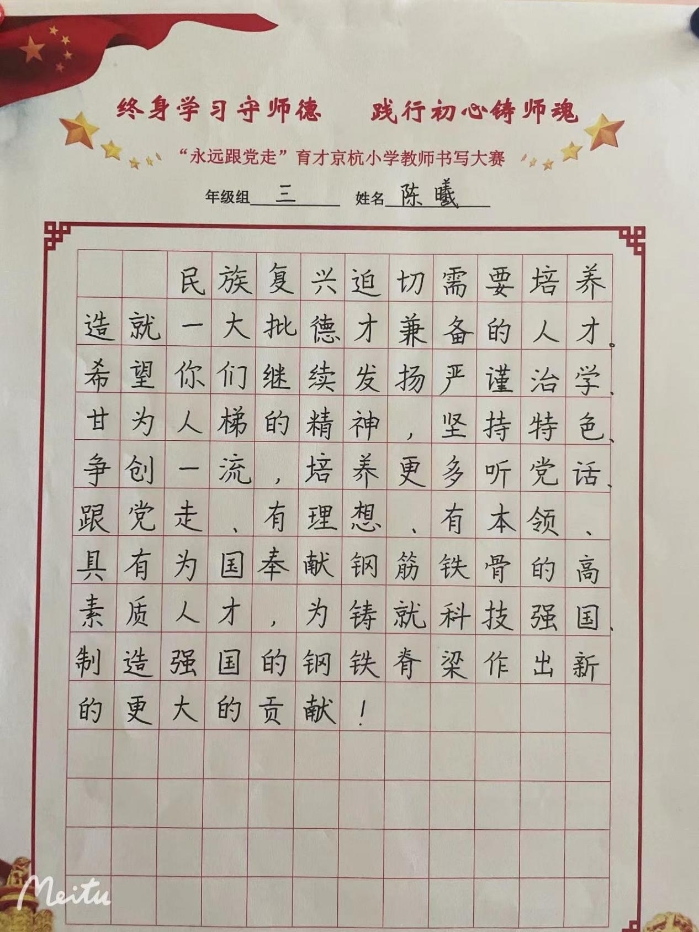 终身学习守师德 践行初心铸师魂
“永远跟党走”育才京杭小学教师书写大赛
年级组 三 姓名 陈曦
民族复兴迫切需要培养
造就一大批德才兼备的人才。
希望你们继续发扬严谨治学、
甘为人梯的精神,坚持特色、
争创一流,培养更多听党话、
跟党走、有理想、有本领、
具有为国奉献钢筋铁骨的高
素质人才,为铸就科技强国、
制造强国的钢铁脊梁作出新
的更大的贡献!
Meitu